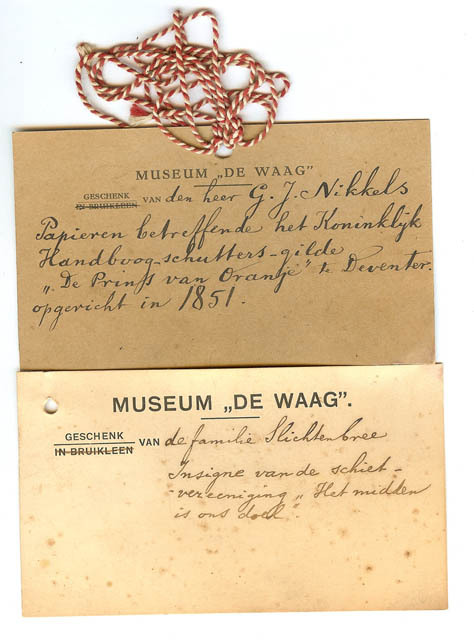 MUSEUM „DE WAAG”
GESCHENK
IN BRUIKLEEN VAN den heer G. J. Nikkels
Papieren betreffende het Koninklijk
Handboog-schutters-gilde
„De Prins van Oranje” te Deventer.
opgericht in 1851.
MUSEUM „DE WAAG”.
GESCHENK
IN BRUIKLEEN VAN de familie Slichtenbree
Insigne van de schiet-
vereeniging „Het midden
is ons doel”.